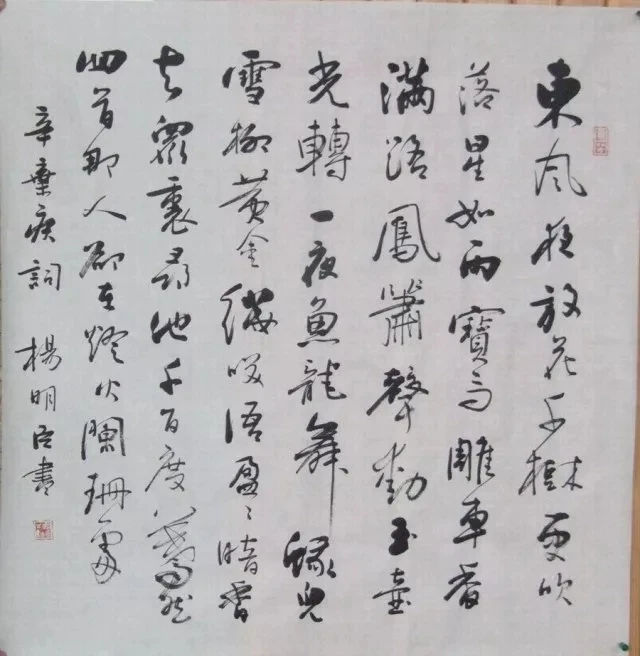 東風夜放花千樹更吹
落星如雨寶馬雕車香
滿路鳳簫聲動玉壺
光轉一夜魚龍舞蛾兒
雪柳黃金縷笑語盈〻暗香
去眾裏尋他千百度驀然
回首那人卻在燈火闌珊處
辛棄疾詞 楊明臣書